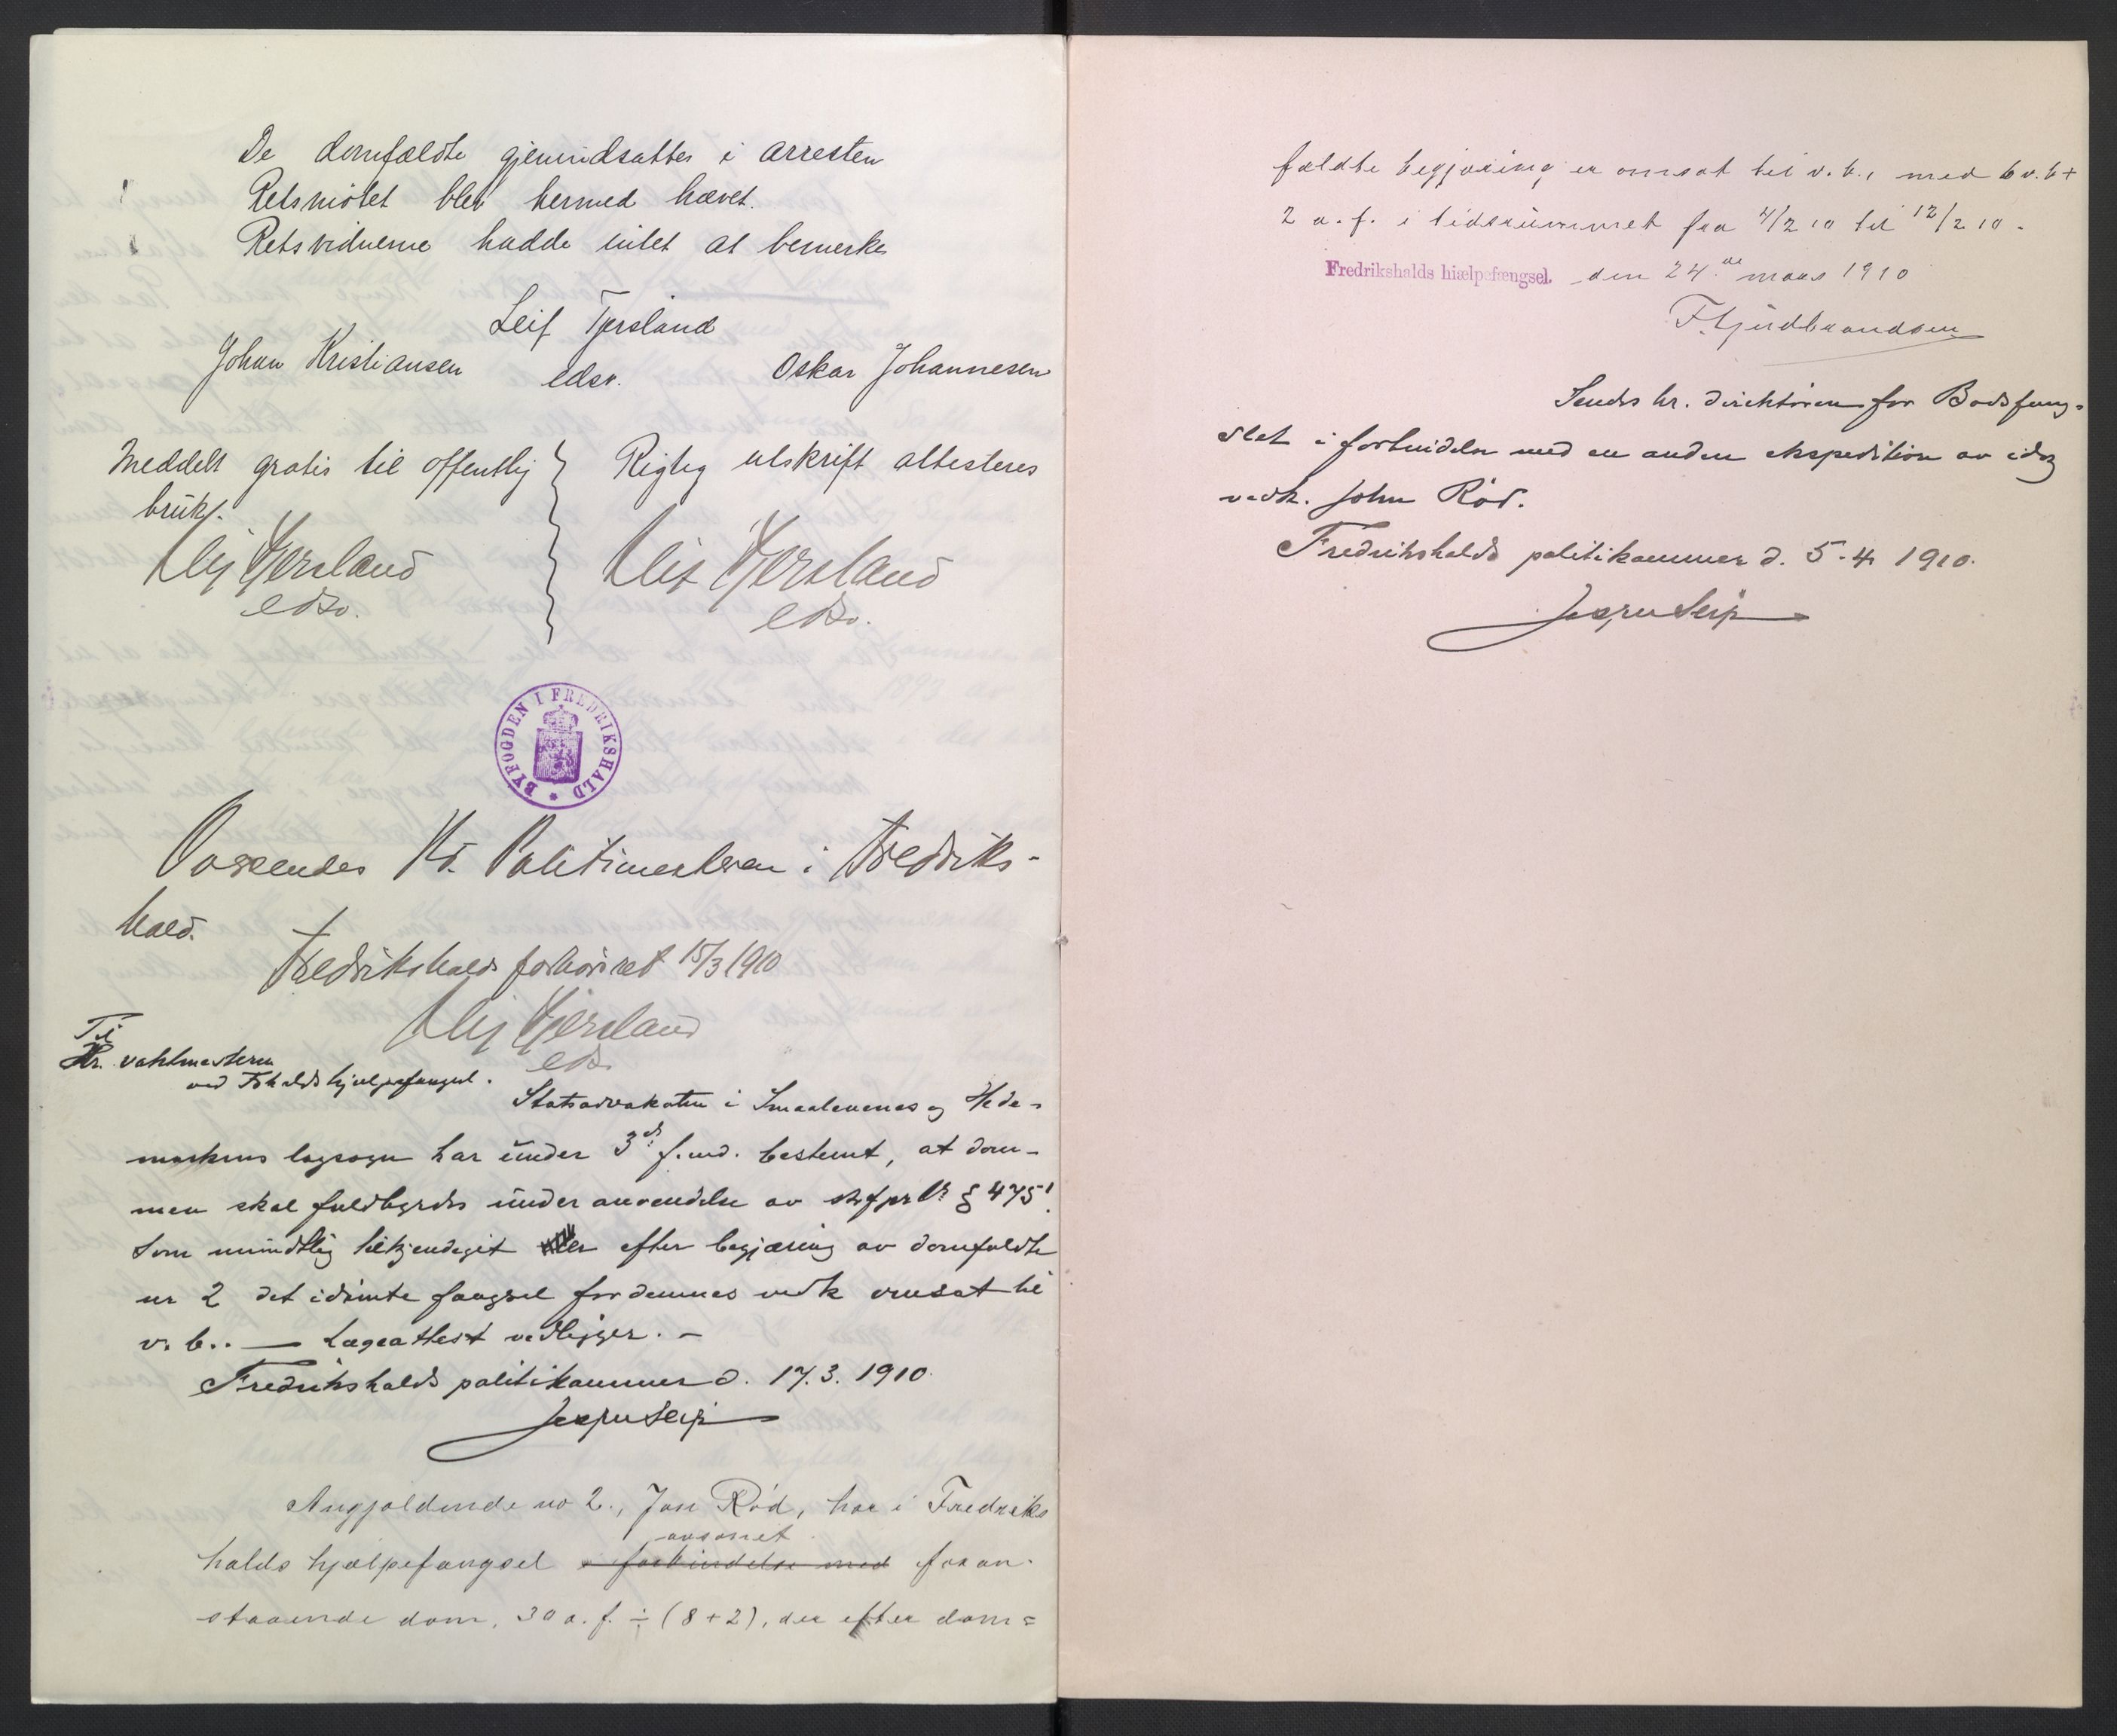 De domfældte gjenindsattes i arresten
Retsmötet blev hermed hævet.
Retsvidnerne hadde intet at bemerke
Leif Tjersland
edsv.
Johan Kristiansen
Oskar Johannesen
Meddelt gratis til offentlig
bruk.
Leif Tjersland
edsv.
Rigtig utskrift attesteres
Leif Tjersland
edsv.
BYFOGDEN I FREDRIKSHALD
Oversendes Hr. Politimesteren i Fredriks-
hald.
Fredrikshalds forhörsret 15/3 1910
Leif Tjersland
eds.
Til
Hr. vaktmesteren
ved Fhalds hjælpefængsel.
Statsadvokaten i Smaalenenes og Hede-
markens lagsogn har under 3d. f.md. bestemt, at dom-
men skal fuldbyrdes under anvendelse av strfprl. § 475!
Som mundtlig tilkjendegit er efter begjæring av domfældte
nr 2 det idömte fængsel for dennes vedk omsat til
v. b.. — Lægeattest vedligger. -
Fredrikshalds politikammer d. 17. 3. 1910.
Jesper Seip
Angjældende no 2., Jon Röd, har i Fredriks
halds hjælpefængsel i forbindelse med avsonet foran-
staaende dom, 30 d. f. ÷ (8+2), der efter dom=
fældte begjæring er omsat til v. b., med 6 v. b +
2 d. f. i tidsrummet fra 4/2 10 til 12/2 10.
Fredrikshalds hiælpefængsel. den 24de mars 1910
F. Gjudbrandsen
Sendes hr. direktören for Bodsfæng-
slet i forbindelse med en anden ekspedition av idag
vedk. John Röd.
Fredrikshalds politikammer d. 5-4 1910.
Jesper Seip